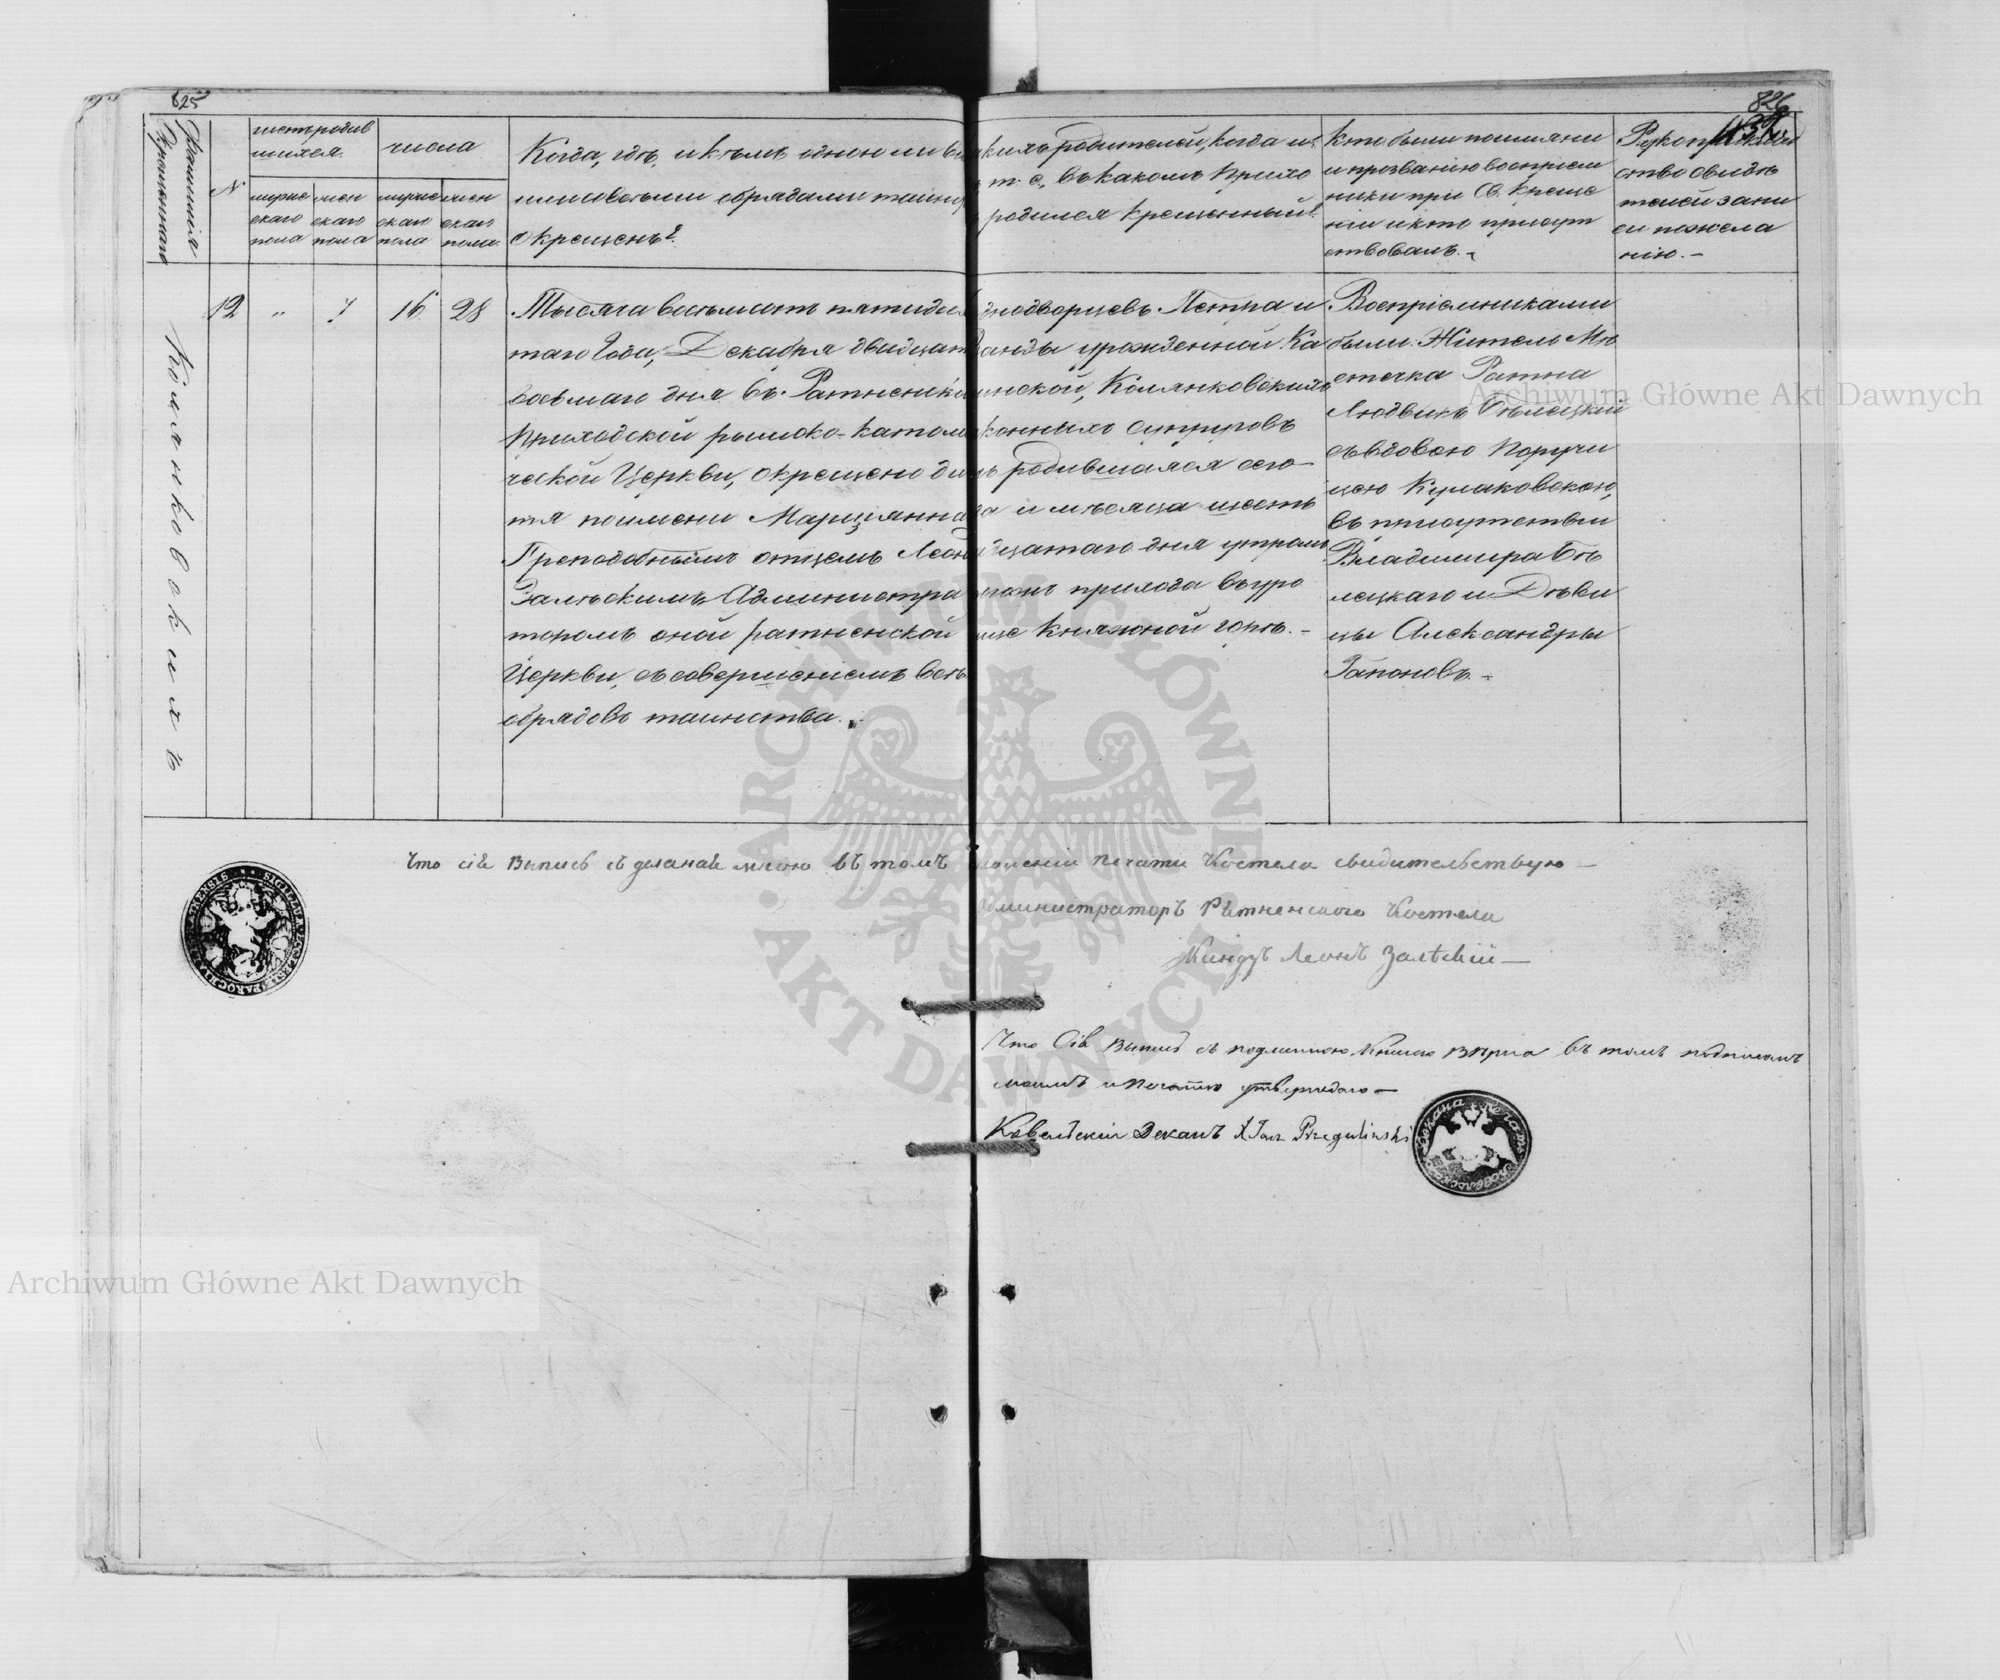 825
826
Фамилія
Крещеннаго
N
числа
мужес
каго
пола
жен
скаго
пола
мужес
скаго
пола
жен
скаго
пола
Когда, гдѣ, и кѣмъ одною ли в
или со всѣми обрядами таин
окрещенъ?
какихъ Родителей, когда и
т. е, въ какомъ Прихо
родился крещенный?
Кто были по имяни
и прозванію воспріем
ники при Св. Креще
ніи и кто присут
ствовалъ.
ство свидѣ
телей запи
си по жела
нію. —
Колянковскихъ
12 " 7 16 28
Тысяча восемьсотъ пятидес
таго Года, Декабря двадцат
восьмаго дня въ Ратненск
Приходской римско-катол
ческой Церкви, окрещено ди
тя по имени Марціянна
Преподобнымъ отцемъ Леон
Залѣскимъ Администра
торомъ оной ратненской
Церкви, съ совершеніемъ всѣ
обрядовъ таинства.
однодворцевъ Петра и
ванды урожденной Ка
инской, Колянковскихъ
конныхъ супруговъ
родившаяся сего
а и мѣсяца шесть
дцатаго дня утромъ
приходѣ въ уро
ще Княжной горѣ. —
Воспріемниками
были: Житель Мѣ
стечка Ратна
Людвикъ Бѣлецкій
съ вдовою Поручи
цею Кулаковскою,
въ присутствіи
Владимира Бѣ
лецкаго и Дѣви
цы Александры
Гапоновъ. —
Что сія Выпись сделаная мною въ томъ
ложеніи печати Костела свидительствую —
Администраторъ Ратненского Костела
Ксіондзъ Леонъ Залѣскій —
Что Сія Выпись съ подлинною Книгою Вѣрна въ томъ подписомъ
моимъ и печатью утверждаю —
Ковельскій Деканъ X Jan Przegulinski
Archiwum Główne Akt Dawnych
Archiwum Główne Akt Dawnych
ARCHIWUM GŁÓWNE
AKT DAWNYCH